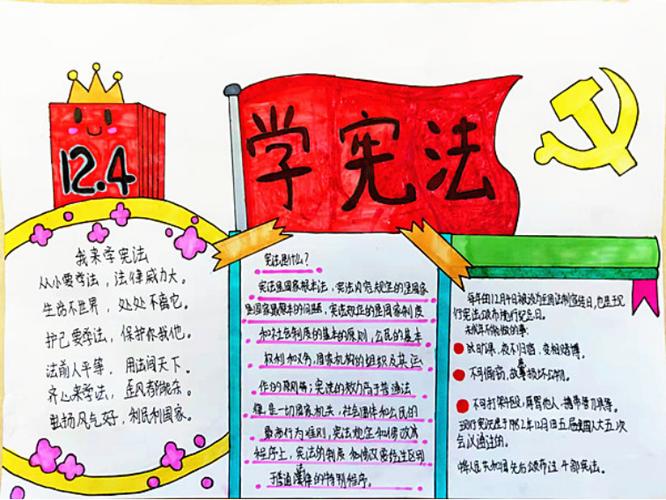 12.4
学宪法
我来学宪法
从小要学法，法律威力大。
生活在世界，处处不离它。
护己要学法，保护你我他。
法前人平等，用法问天下。
齐心来学法，歪风都除去。
弘扬风气好，利民利国家。
宪法是什么？
宪法是国家根本法，宪法内容规定的是国家
的问题，宪法规定的是国家制度
和社会制度的基本的原则，公民的基本
权利和义务，国家机构的组织及其运
作的原则等；宪法的效力高于普通法
律，是一切国家机关，社会团体和公民的
最高行为准则，宪法
程序上，宪法的制度
普通法律的特别程序。
每年的12月4日被设为全国法制宣传日，也是现
行宪法颁布施行纪念日。
未成年不能做的事：
夜不归宿，变相赌博。
不可偷窃，故意损坏公物。
不可打架斗殴，辱骂他人，携带管刀具等。
现行宪法是于1982年12月4日五届全国人大五次
会议通过的。